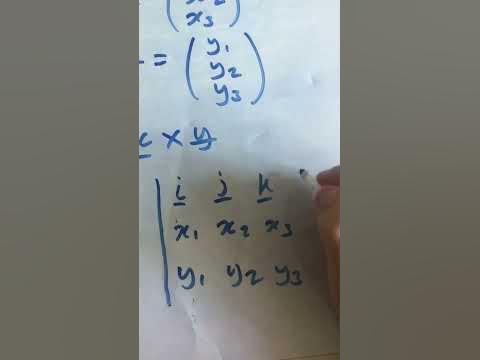 x₃
= ( y₁
y₂
y₃ )
x y
i j k
x₁ x₂ x₃
y₁ y₂ y₃